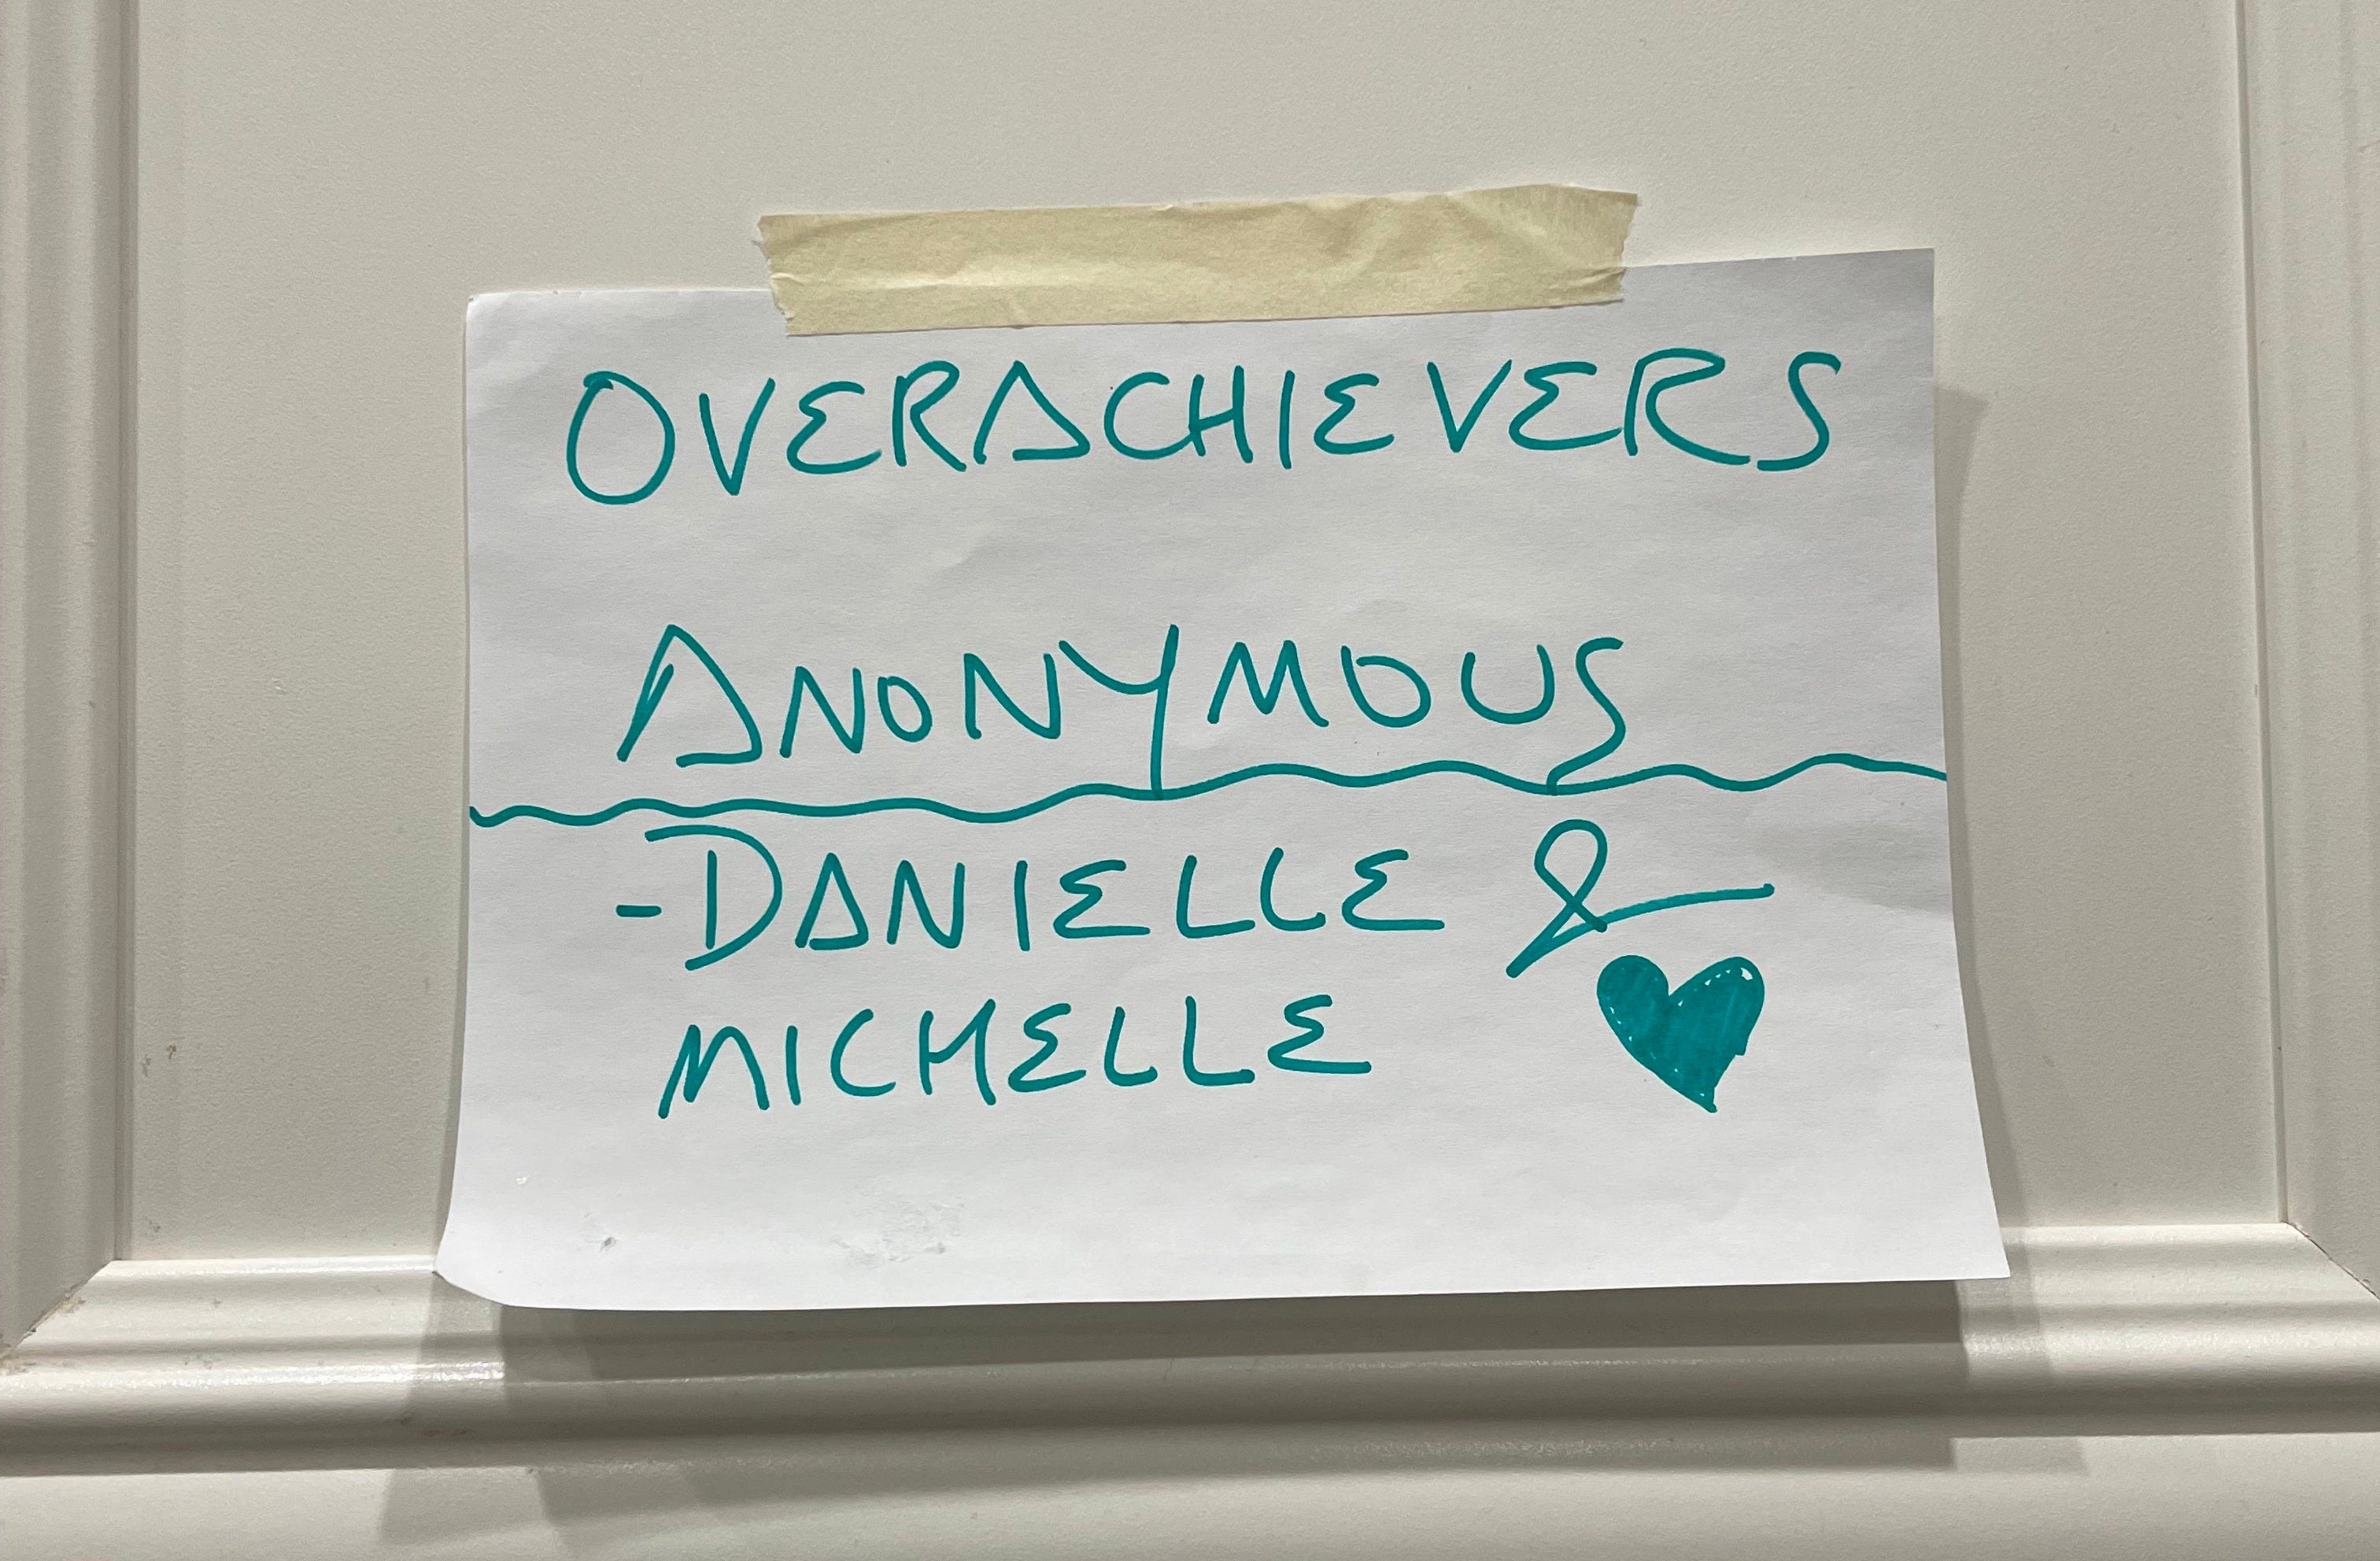 OVERACHIEVERS
ANONYMOUS
-DANIELLE &
MICHELLE